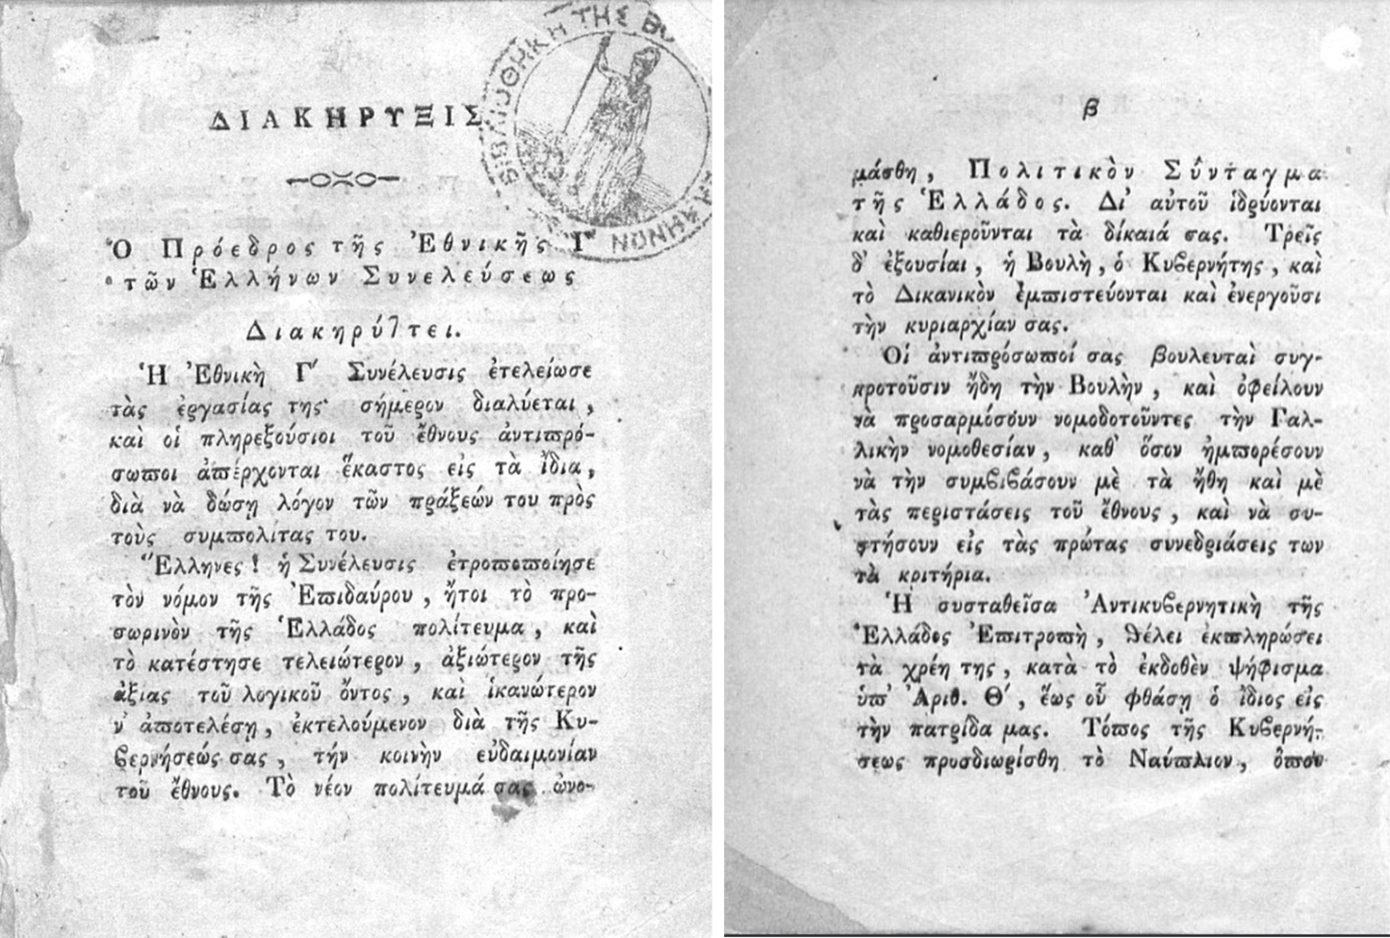 ΔΙΑΚΗΡΥΞΙΣ
ΒΙΒΛΙΟΘΗΚΗ ΤΗΣ ΒΟ
Ὁ Πρόεδρος τῆς Ἐθνικῆς Γ΄
τῶν Ἑλλήνων Συνελεύσεως
Διακηρύττει.
Ἡ Ἐθνικὴ Γ΄ Συνέλευσις ἐτελείωσε
τὰς ἐργασίας της· σήμερον διαλύεται,
καὶ οἱ πληρεξούσιοι τοῦ ἔθνους ἀντιπρό-
σωποι ἀπέρχονται ἕκαστος εἰς τὰ ἴδια,
διὰ νὰ δώσῃ λόγον τῶν πράξεών του πρὸς
τοὺς συμπολίτας του.
Ἕλληνες! ἡ Συνέλευσις ἐτροποποίησε
τὸν νόμον τῆς Ἐπιδαύρου, ἤτοι τὸ προ-
σωρινὸν τῆς Ἑλλάδος πολίτευμα, καὶ
τὸ κατέστησε τελειώτερον, ἀξιώτερον τῆς
ἀξίας τοῦ λογικοῦ ὄντος, καὶ ἱκανώτερον
ν' ἀποτελέσῃ, ἐκτελούμενον διὰ τῆς Κυ-
βερνήσεώς σας, τήν κοινὴν εὐδαιμονίαν
τοῦ ἔθνους. Τὸ νέον πολίτευμά σας ὠνο-
β
μάσθη, Πολιτικὸν Σύνταγμα
τῆς Ἑλλάδος. Δι' αὐτοῦ ἱδρύονται
καὶ καθιεροῦνται τὰ δίκαιά σας. Τρεῖς
δ' ἐξουσίαι, ἡ Βουλὴ, ὁ Κυβερνήτης, καὶ
τὸ Δικανικὸν ἐμπιστεύονται καὶ ἐνεργοῦσι
τὴν κυριαρχίαν σας.
Οἱ ἀντιπρόσωποί σας βουλευταὶ συγ-
κροτοῦσιν ἤδη τὴν Βουλὴν, καὶ ὀφείλουν
νὰ προσαρμόσουν νομοδοτοῦντες τὴν Γαλ-
λικὴν νομοθεσίαν, καθ' ὅσον ἠμπορέσουν
νὰ τὴν συμβιβάσουν μὲ τὰ ἤθη καὶ μὲ
τὰς περιστάσεις τοῦ ἔθνους, καὶ νὰ συ-
στήσουν εἰς τὰς πρώτας συνεδριάσεις των
τὰ κριτήρια.
Ἡ συσταθεῖσα Ἀντικυβερνητικὴ τῆς
Ἑλλάδος Ἐπιτροπὴ, θέλει ἐκπληρώσει
τὰ χρέη της, κατὰ τὸ ἐκδοθὲν ψήφισμα
ὑπ' Ἀριθ. Θ΄, ἕως οὗ φθάσῃ ὁ ἴδιος εἰς
τὴν πατρίδα μας. Τόπος τῆς Κυβερνή-
σεως προσδιωρίσθη τὸ Ναύπλιον, ὅπου